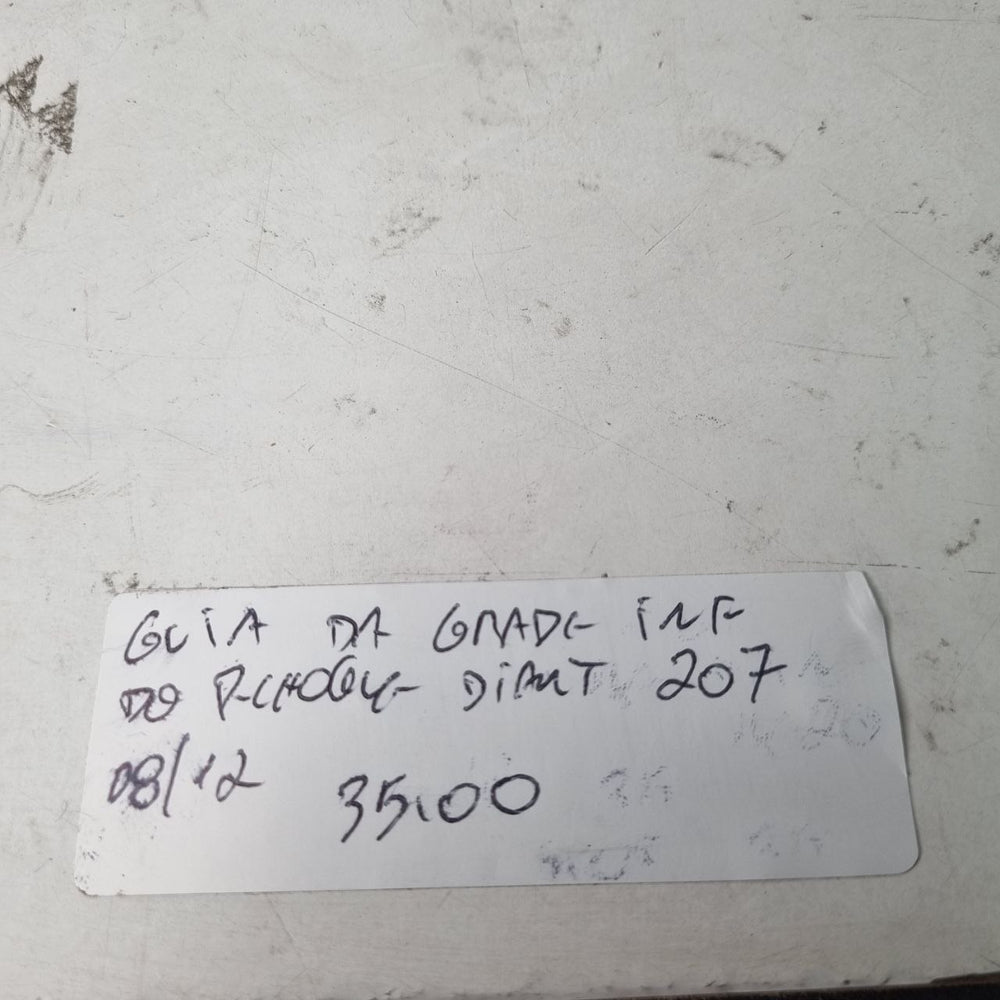 GUIA DA GRADE INF
DO P-CHOQUE DIANT 207
08/12 35,00